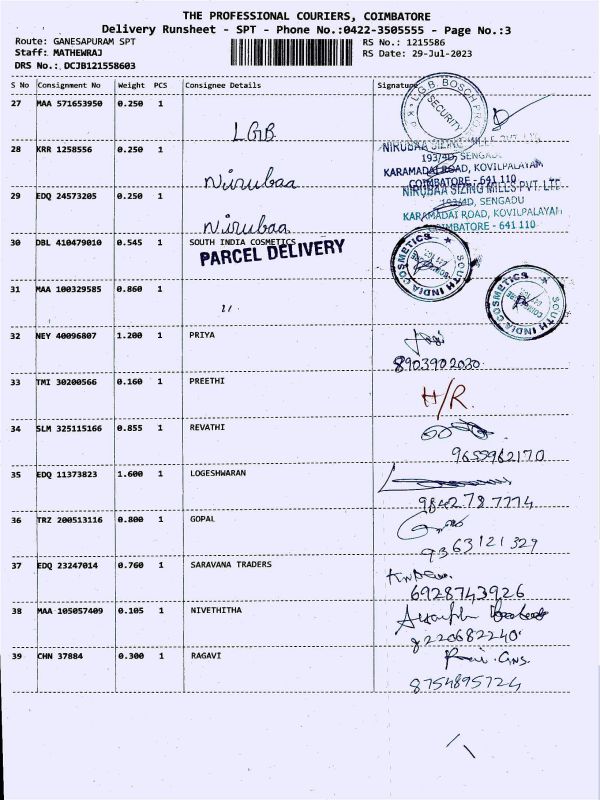 THE PROFESSIONAL COURIERS, COIMBATORE
Delivery Runsheet - SPT - Phone No.:0422-3505555 - Page No.:3
Route: GANESAPURAM SPT RS No.: 1215586
Staff: MATHEWRAJ RS Date: 29-Jul-2023
DRS No.: DCJB121558603
S No Consignment No Weight PCS Consignee Details Signature
27 MAA 571653950 0.250 1 LGB
L.G.B. BOSCH
SECURITY
28 KRR 1258556 0.250 1 Nirubaa
NIRUBAA SIZING MILLS PVT. LTD
193/4D, SENGADU
KARAMADAI ROAD, KOVILPALAYAM
COIMBATORE - 641 110
29 EDQ 24573205 0.250 1 Nirubaa
NIRUBAA SIZING MILLS PVT. LTD
193/4D, SENGADU
KARAMADAI ROAD, KOVILPALAYAM
COIMBATORE - 641 110
30 DBL 410479010 0.545 1 SOUTH INDIA COSMETICS
PARCEL DELIVERY
SOUTH INDIA COSMETICS
31 MAA 100329585 0.860 1 "
SOUTH INDIA COSMETICS
32 NEY 40096807 1.200 1 PRIYA
8903902030
33 TMI 30200566 0.160 1 PREETHI H/R
34 SLM 325115166 0.855 1 REVATHI
9655962170
35 EDQ 11373823 1.600 1 LOGESHWARAN
9842787774
36 TRZ 200513116 0.800 1 GOPAL
9363121329
37 EDQ 23247014 0.760 1 SARAVANA TRADERS
6928743926
38 MAA 105057409 0.105 1 NIVETHITHA
8220682240
39 CHN 37884 0.300 1 RAGAVI
8754895724